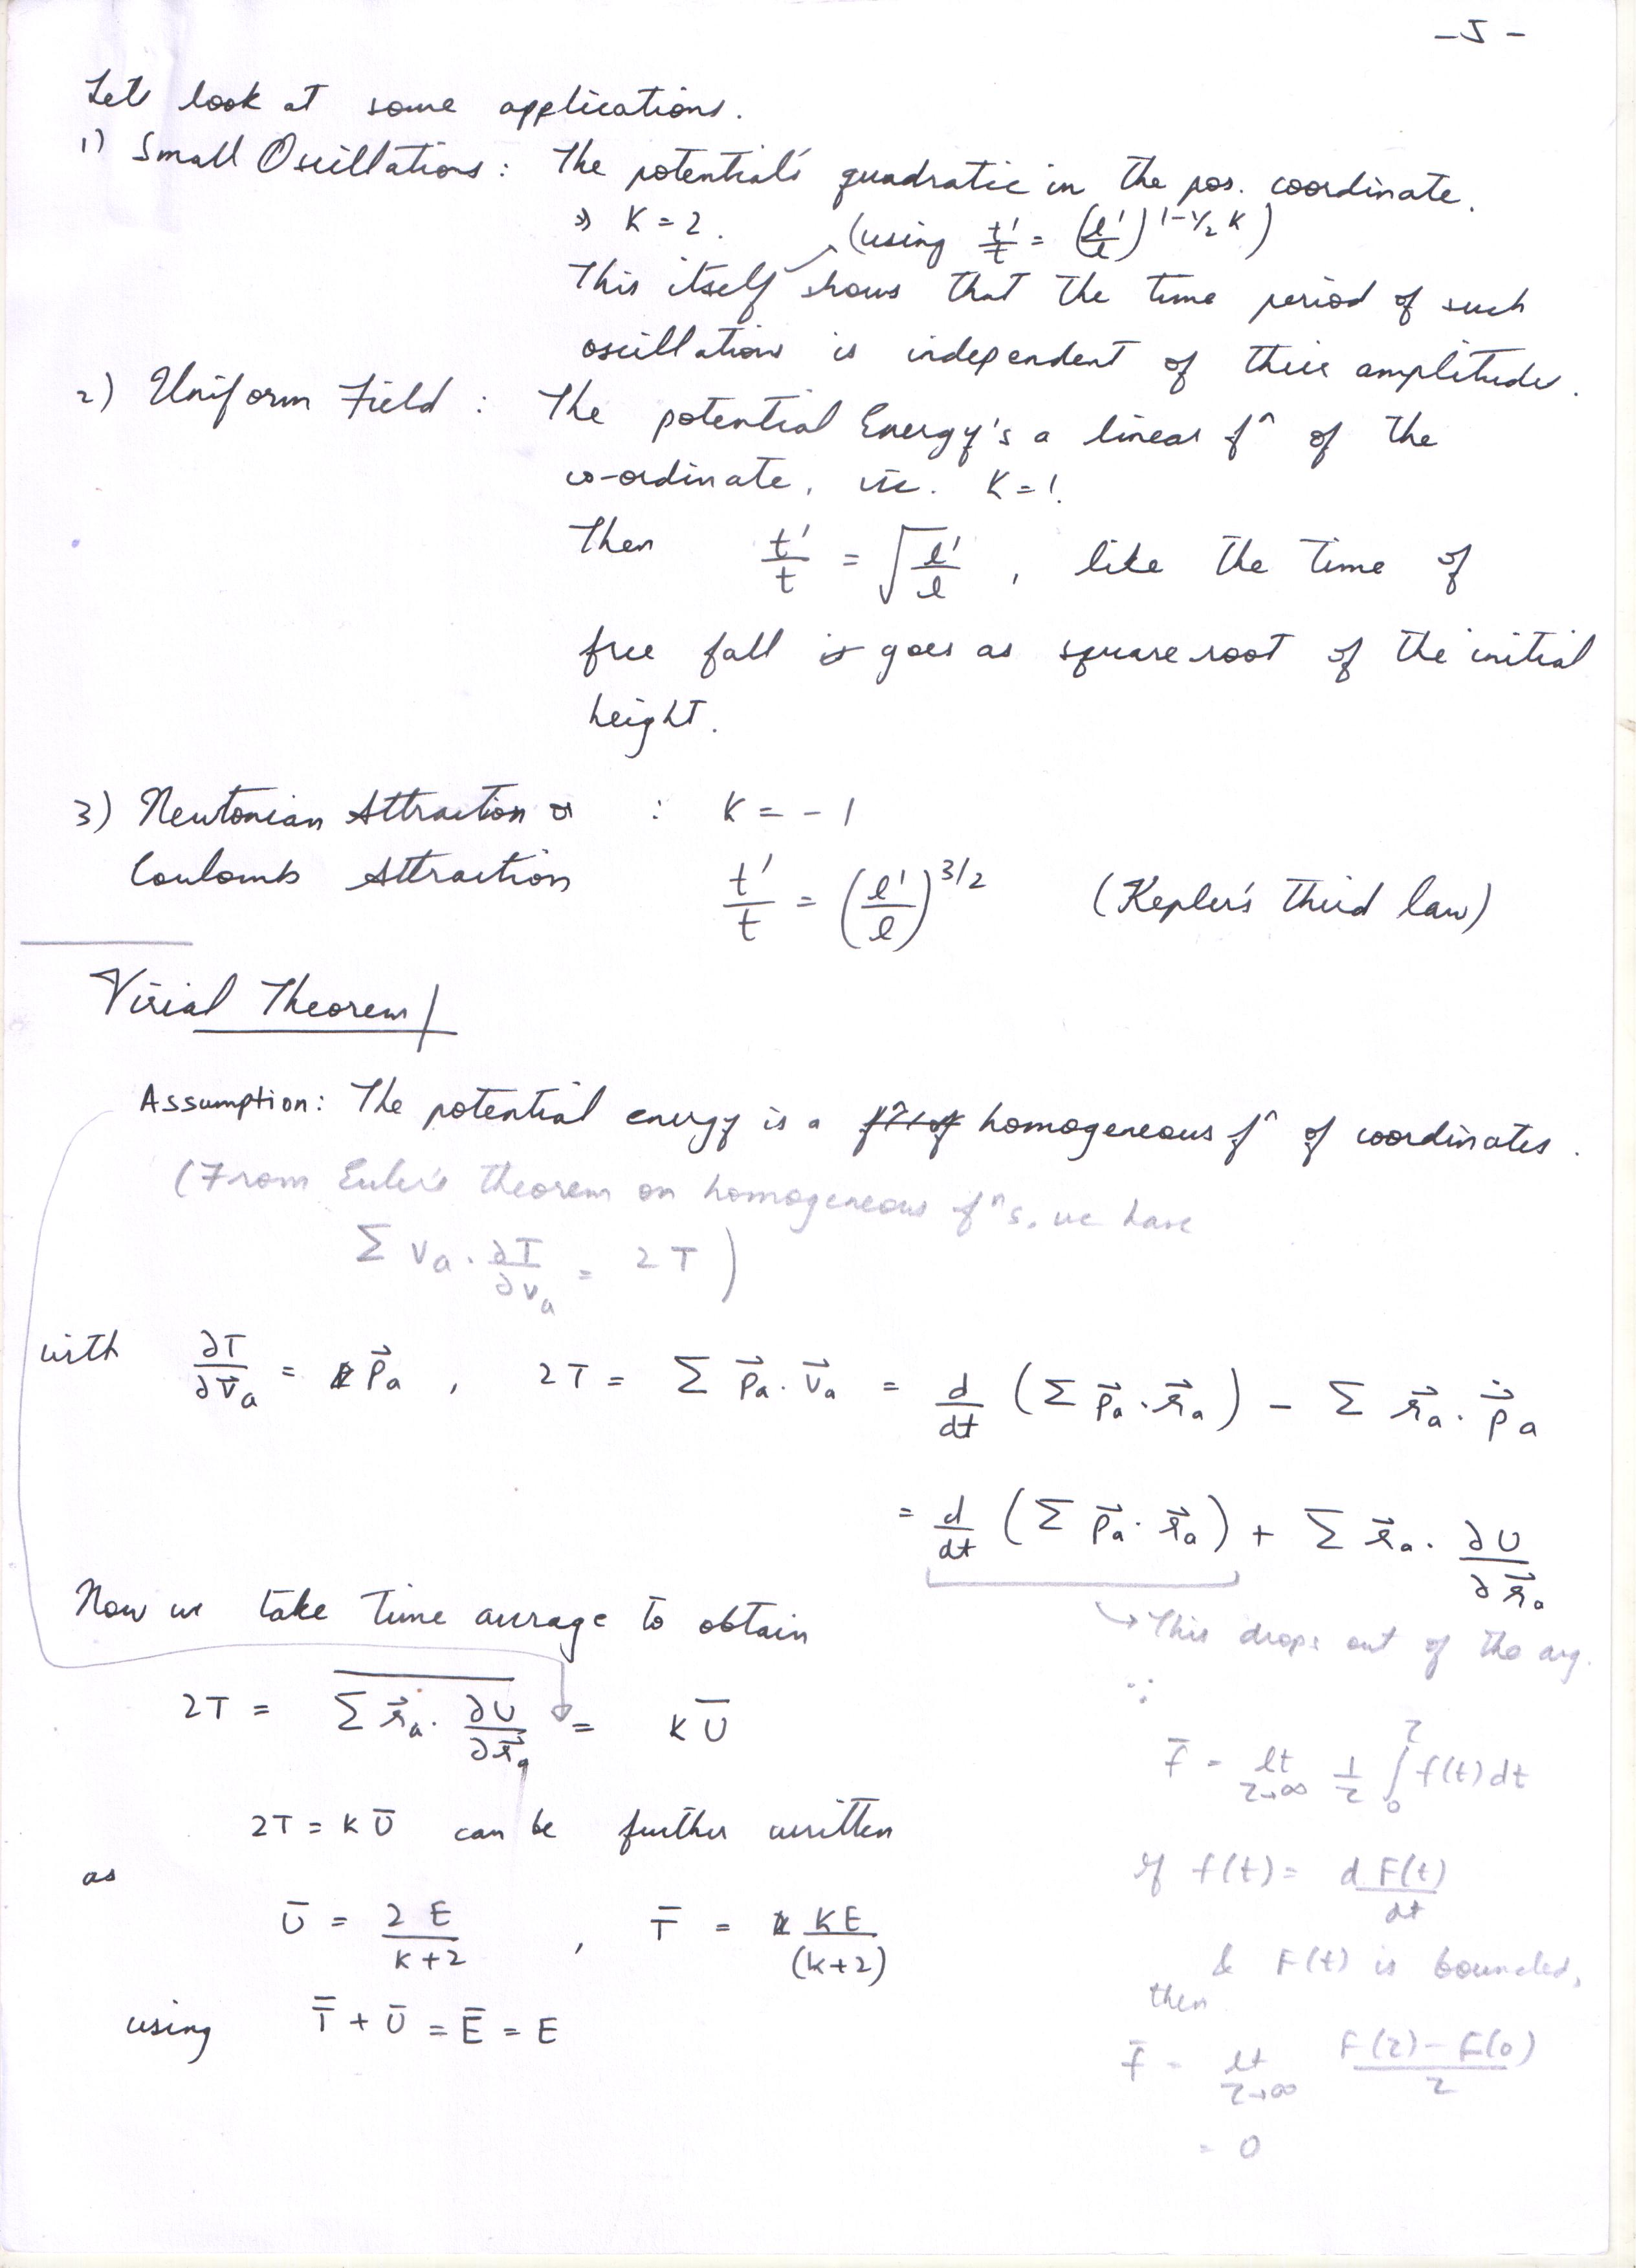 -5-
Lets look at some applications.
1) Small Oscillations : The potential's quadratic in the pos. coordinate.
⇒ K = 2. (using t'/t = (l'/l)^{1-1/2 K})
This itself shows that the time period of such
oscillations is independent of their amplitudes.
2) Uniform Field : The potential Energy's a linear fⁿ of the
co-ordinate, viz. K = 1.
Then t'/t = √(l'/l) , like the time of
free fall is goes as square root of the initial
height.
3) Newtonian Attraction or : K = -1
Coulomb Attraction t'/t = (l'/l)^{3/2} (Kepler's third law)
Virial Theorem/
Assumption: The potential energy is a homogeneous fⁿ of coordinates.
(From Euler's theorem on homogeneous fⁿs, we have
Σ v_a · ∂T/∂v_a = 2T)
with ∂T/∂v⃗_a = p⃗_a , 2T = Σ p⃗_a · v⃗_a = d/dt (Σ p⃗_a · r⃗_a) - Σ r⃗_a · ṗ⃗_a
= d/dt (Σ p⃗_a · r⃗_a) + Σ r⃗_a · ∂U/∂r⃗_a
→ This drops out of the avg.
Now we take time average to obtain
2T = \overline{Σ r⃗_a · ∂U/∂r⃗_a} = K Ū
2T = K Ū can be further written
as
Ū = 2E/(K+2) , T̄ = KE/(K+2)
using T̄ + Ū = Ē = E
∵
f̄ = lt_{τ→∞} 1/τ ∫_0^τ f(t) dt
if f(t) = dF(t)/dt
& F(t) is bounded,
then
f̄ = lt_{τ→∞} (F(τ) - F(0))/τ
= 0